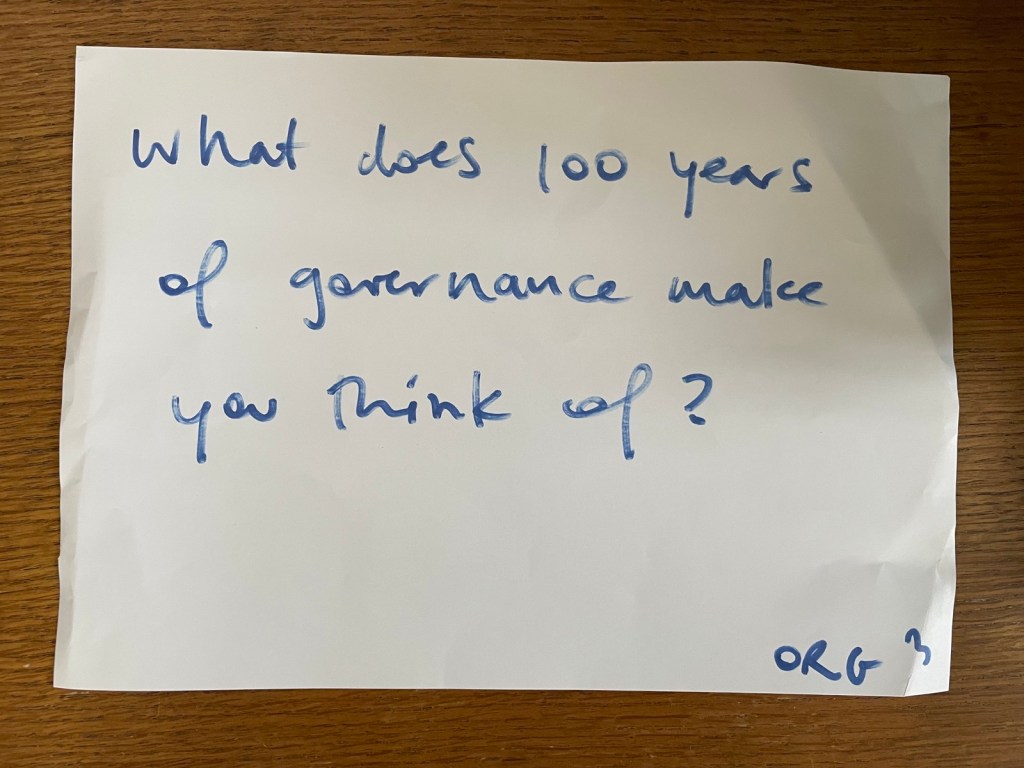 What does 100 years
of governance make
you think of?
ORG 3